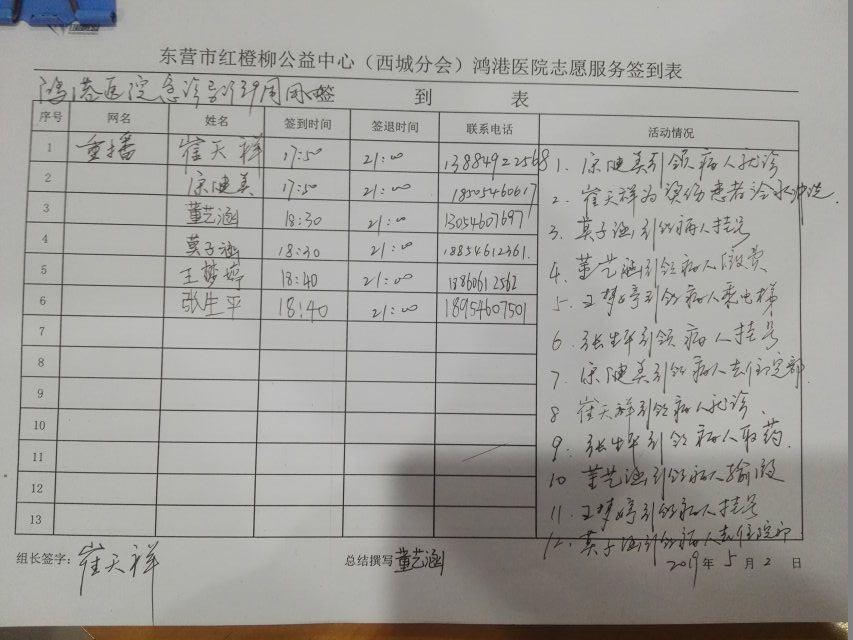 东营市红橙柳公益中心（西城分会）鸿港医院志愿服务签到表
鸿港医院急诊 签 到 表
序号 网名 姓名 签到时间 签退时间 联系电话 活动情况
1 重播 崔天祥 17:50 21:00 13884922568
2 宗健美 17:50 21:00 18505460617
3 董艺涵 18:30 21:00 13054607697
4 莫子涵 18:30 21:00 18854612361.
5 王梦婷 18:40 21:00 18860612562
6 张生平 18:40 21:00 18954607501
7
8
9
10
11
12
13
1. 宗健美引领病人就诊
2. 崔天祥为烫伤患者冷水冲洗.
3. 莫子涵引领病人挂号
4. 董艺涵引领病人缴费
5. 王梦婷引领病人乘电梯
6. 张生平引领病人挂号
7. 宗健美引领病人去住院部
8 崔天祥引领病人就诊.
9. 张生平引领病人取药.
10 董艺涵引领病人输液
11. 王梦婷引领病人挂号
12. 莫子涵引领病人去住院部
组长签字：崔天祥 总结撰写 董艺涵 2019年5月2日